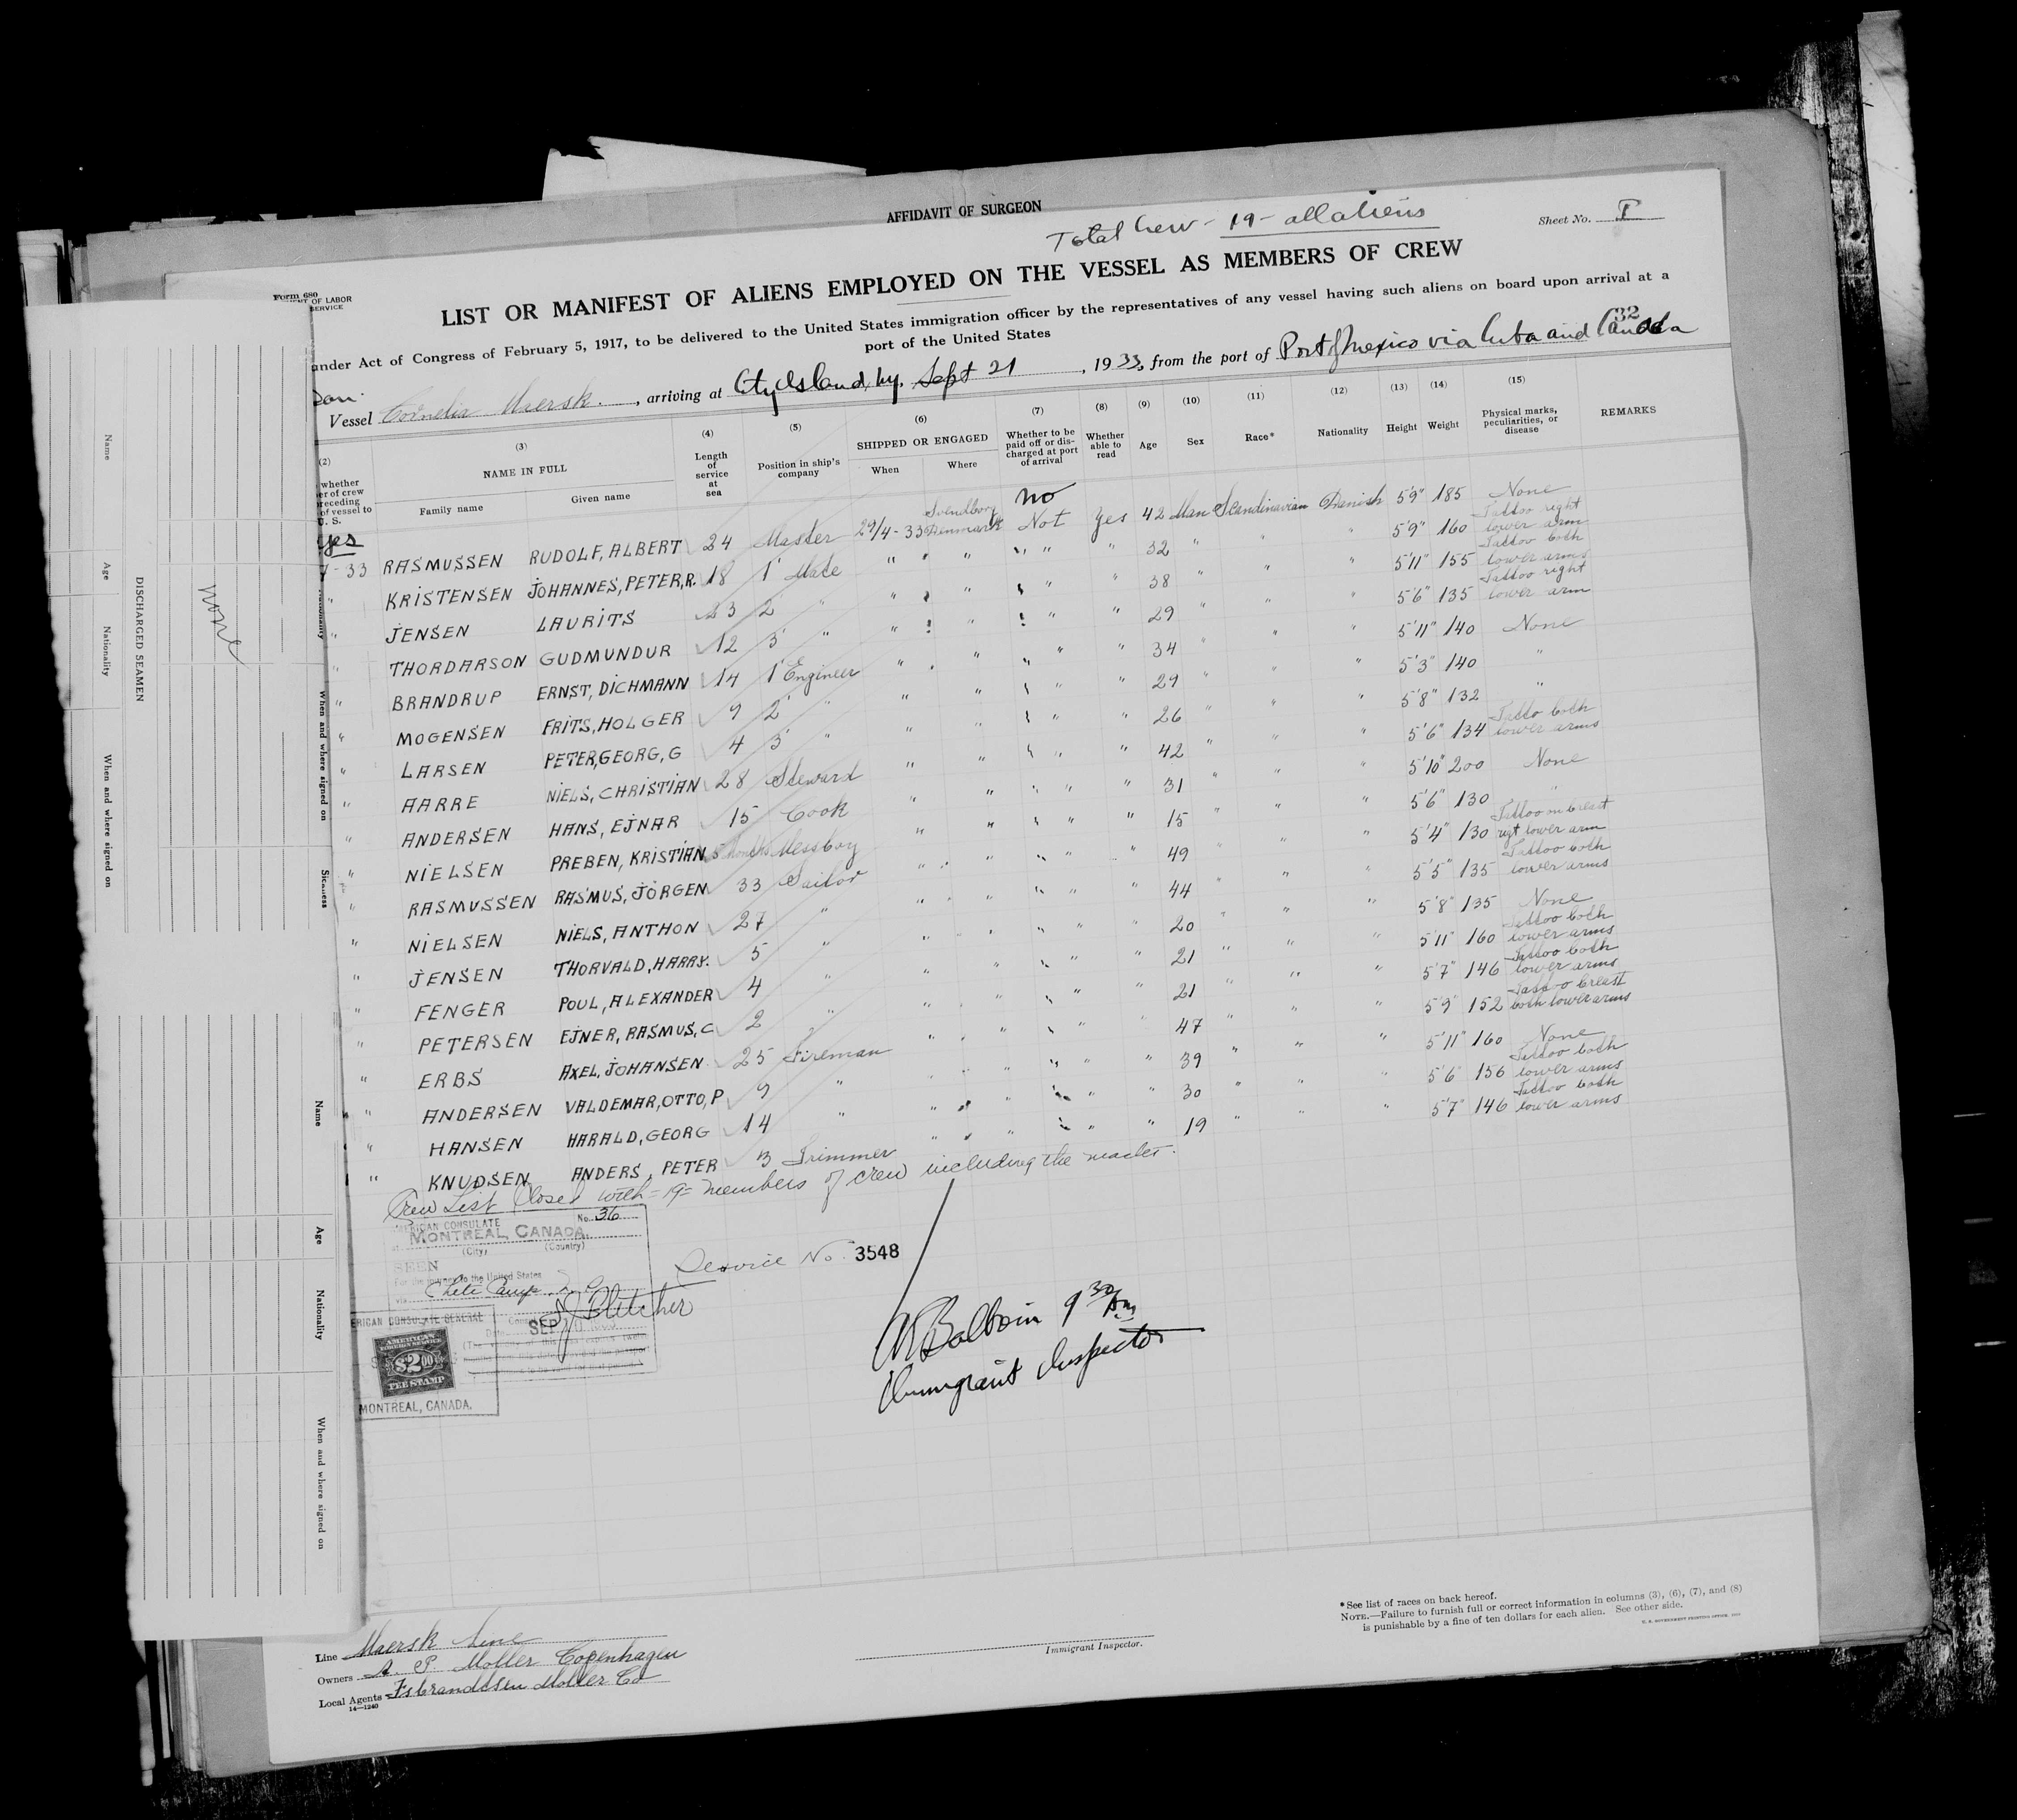 AFFIDAVIT OF SURGEON
Total Crew - 19 - all aliens
Sheet No. 1
Form 680
OF LABOR
SERVICE
LIST OR MANIFEST OF ALIENS EMPLOYED ON THE VESSEL AS MEMBERS OF CREW
under Act of Congress of February 5, 1917, to be delivered to the United States immigration officer by the representatives of any vessel having such aliens on board upon arrival at a
port of the United States
32
Dan.
Vessel Cornelia Maersk, arriving at City Island, Ny. Sept 21, 1933, from the port of Port of Mexico via Cuba and Canada
(2) (3) (4) (5) (6) (7) (8) (9) (10) (11) (12) (13) (14) (15)
whether
er of crew
preceding
of vessel to
U. S.
NAME IN FULL
Family name Given name
Length of service at sea
Position in ship's company
SHIPPED OR ENGAGED
When Where
Whether to be paid off or discharged at port of arrival
Whether able to read
Age
Sex
Race*
Nationality
Height
Weight
Physical marks, peculiarities, or disease
REMARKS
yes
no
7-33 RASMUSSEN RUDOLF, ALBERT 24 Master 29/4-33 Svendborg Denmark Not Yes 42 Man Scandinavian Danish 5'9" 185 None
" KRISTENSEN JOHANNES, PETER, R. 18 1' Mate " " " " 32 " " " 5'9" 160 Tattoo right lower arm
" JENSEN LAURITS 23 2' " " " " " 38 " " " 5'11" 155 Tattoo both lower arms
" THORDARSON GUDMUNDUR 12 3' " " " " " 29 " " " 5'6" 135 Tattoo right lower arm
" BRANDRUP ERNST, DICHMANN 14 1' Engineer " " " " 34 " " " 5'11" 140 None
" MOGENSEN FRITS, HOLGER 9 2' " " " " " 29 " " " 5'3" 140 "
" LARSEN PETER, GEORG, G 4 3' " " " " " 26 " " " 5'8" 132 "
" AARRE NIELS, CHRISTIAN 28 Steward " " " " 42 " " " 5'6" 134 Tatto both lower arms
" ANDERSEN HANS, EJNAR 15 Cook " " " " 31 " " " 5'10" 200 None
" NIELSEN PREBEN, KRISTIAN 5 months Messboy " " " " 15 " " " 5'6" 130 "
" RASMUSSEN RASMUS, JÖRGEN 33 Sailor " " " " 49 " " " 5'4" 130 Tattoo on breast rigt lower arm
" NIELSEN NIELS, ANTHON 27 " " " " " 44 " " " 5'5" 135 Tattoo both lower arms
" JENSEN THORVALD, HARRY. 5 " " " " " 20 " " " 5'8" 135 None
" FENGER POUL, ALEXANDER 4 " " " " " 21 " " " 5'11" 160 Tattoo both lower arms
" PETERSEN EJNER, RASMUS, C 2 " " " " " 21 " " " 5'7" 146 Tattoo both lower arms
" ERBS AXEL, JOHANSEN 25 Fireman " " " " 47 " " " 5'9" 152 Tattoo breast both lower arms
" ANDERSEN VALDEMAR, OTTO, P 9 " " " " " 39 " " " 5'11" 160 None
" HANSEN HARALD, GEORG 14 " " " " " 30 " " " 5'6" 156 Tattoo both lower arms
" KNUDSEN ANDERS, PETER 3 Trimmer " " " " 19 " " " 5'7" 146 Tattoo both lower arms
Crew List Closed with =19= members of crew including the master.
AMERICAN CONSULATE No. 36
at MONTREAL, CANADA.
(City) (Country)
SEEN
For the journey to the United States
via
Fletcher
SEP
Service No. 3548
ERICAN CONSULATE GENERAL
AMERICAN
FOREIGN SERVICE
$2.00
FEE STAMP
MONTREAL, CANADA.
Baldwin 9 30 Am
Immigrant Inspector
Name
Age
Nationality
When and where signed on
DISCHARGED SEAMEN
none
When and where signed on
Sickness
Name
Age
Nationality
When and where signed on
Line Maersk Line
Owners A. P. Moller Copenhagen
Local Agents Isbrandtsen Moller Co
14—1240
Immigrant Inspector.
*See list of races on back hereof.
NOTE.—Failure to furnish full or correct information in columns (3), (6), (7), and (8)
is punishable by a fine of ten dollars for each alien. See other side.
U. S. GOVERNMENT PRINTING OFFICE